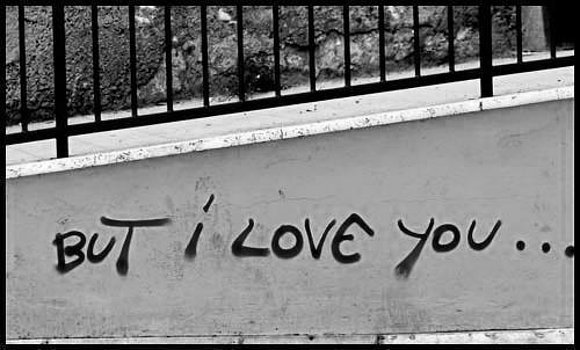 BUT i LOVE YOU...